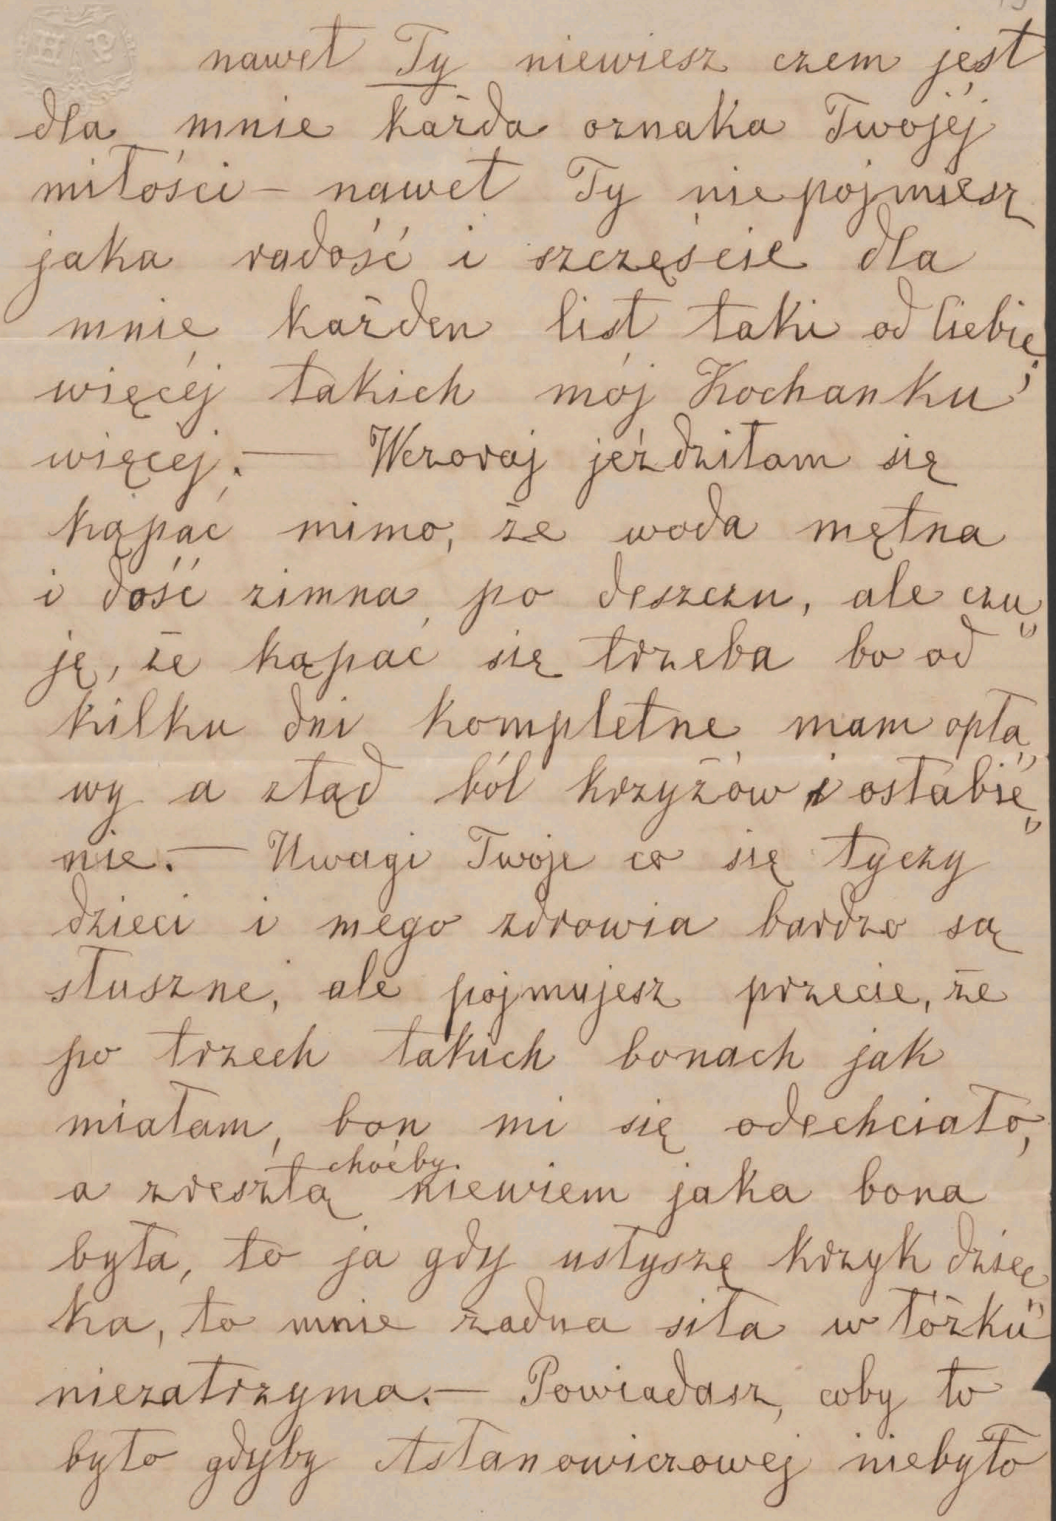 HP
nawet Ty niewiesz czem jest
dla mnie każda oznaka Twojéj
miłości – nawet Ty niepojmiesz
jaka radość i szczęście dla
mnie każden list taki od Ciebie,
więcéj takich mój Kochanku
więcéj. — Wczoraj jeździłam się
kąpać mimo, że woda mętna
i dość zimna po deszczu, ale czu„
ję, że kąpać się trzeba bo od
kilku dni kompletne mam opła„
wy a ztąd ból krzyżów i osłabie„
nie. — Uwagi Twoje co się tyczy
dzieci i mego zdrowia bardzo są
słuszne, ale pojmujesz przecie, że
po trzech takich bonach jak
miałam, bon mi się odechciało,
a zresztą choćby niewiem jaka bona
była, to ja gdy usłyszę krzyk dziec„
ka, to mnie żadna siła w łóżku
niezatrzyma. — Powiadasz, coby to
było gdyby Astanowiczowej niebyło